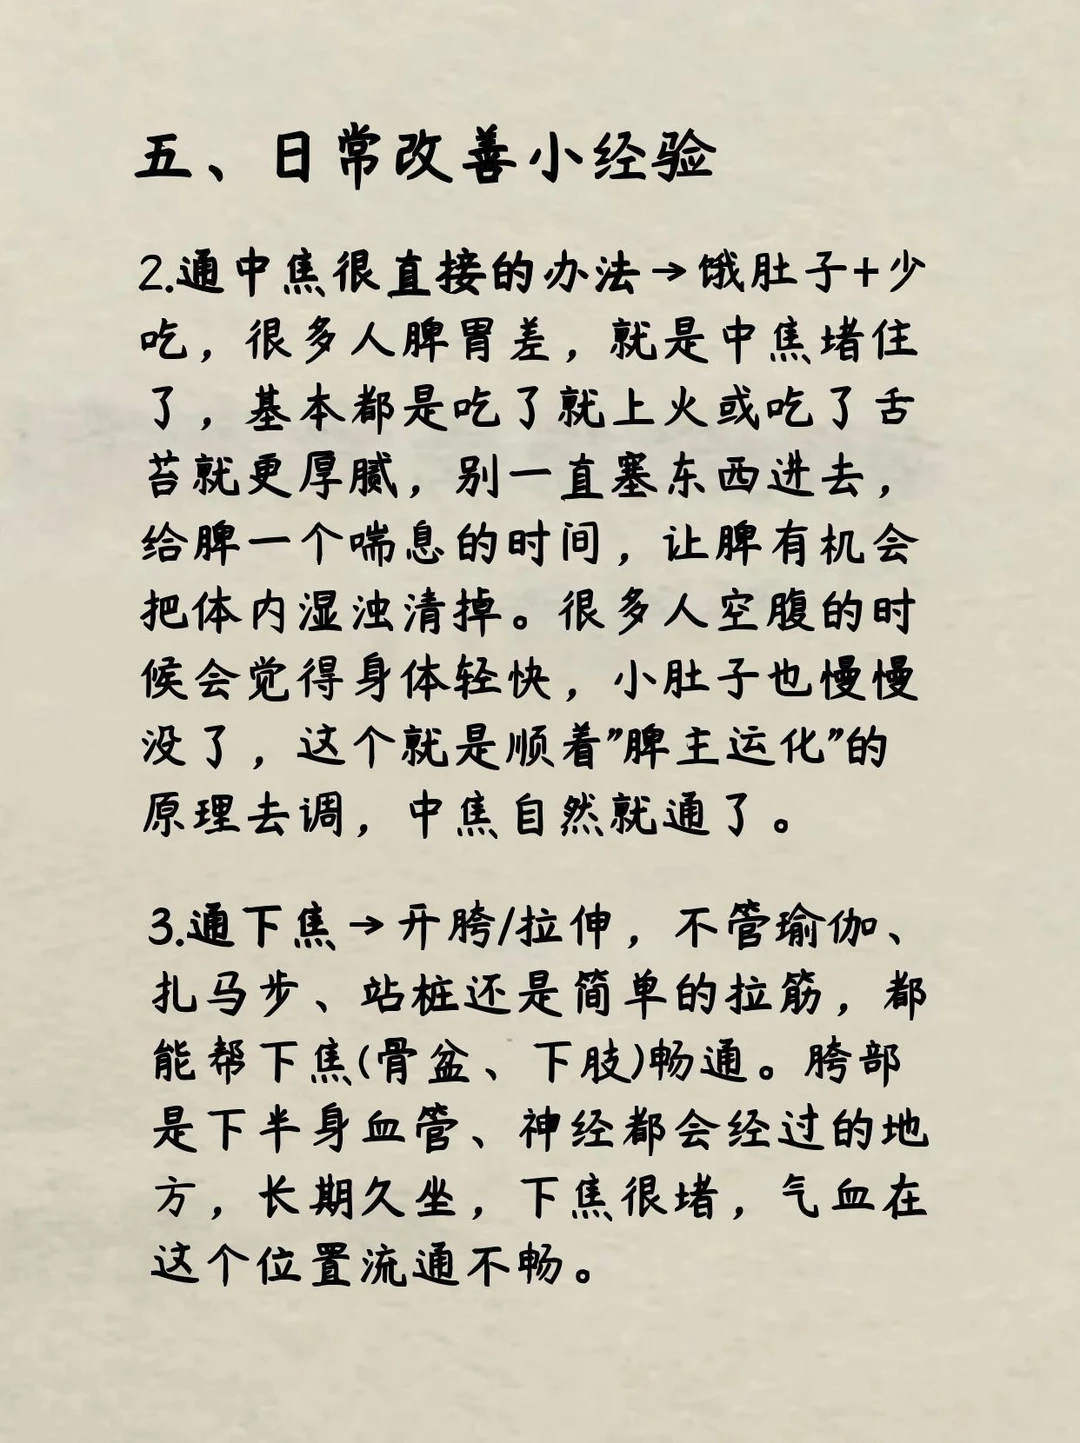 五、日常改善小经验
2.通中焦很直接的办法→饿肚子+少
吃，很多人脾胃差，就是中焦堵住
了，基本都是吃了就上火或吃了舌
苔就更厚腻，别一直塞东西进去，
给脾一个喘息的时间，让脾有机会
把体内湿浊清掉。很多人空腹的时
候会觉得身体轻快，小肚子也慢慢
没了，这个就是顺着"脾主运化"的
原理去调，中焦自然就通了。
3.通下焦→开胯/拉伸，不管瑜伽、
扎马步、站桩还是简单的拉筋，都
能帮下焦(骨盆、下肢)畅通。胯部
是下半身血管、神经都会经过的地
方，长期久坐，下焦很堵，气血在
这个位置流通不畅。